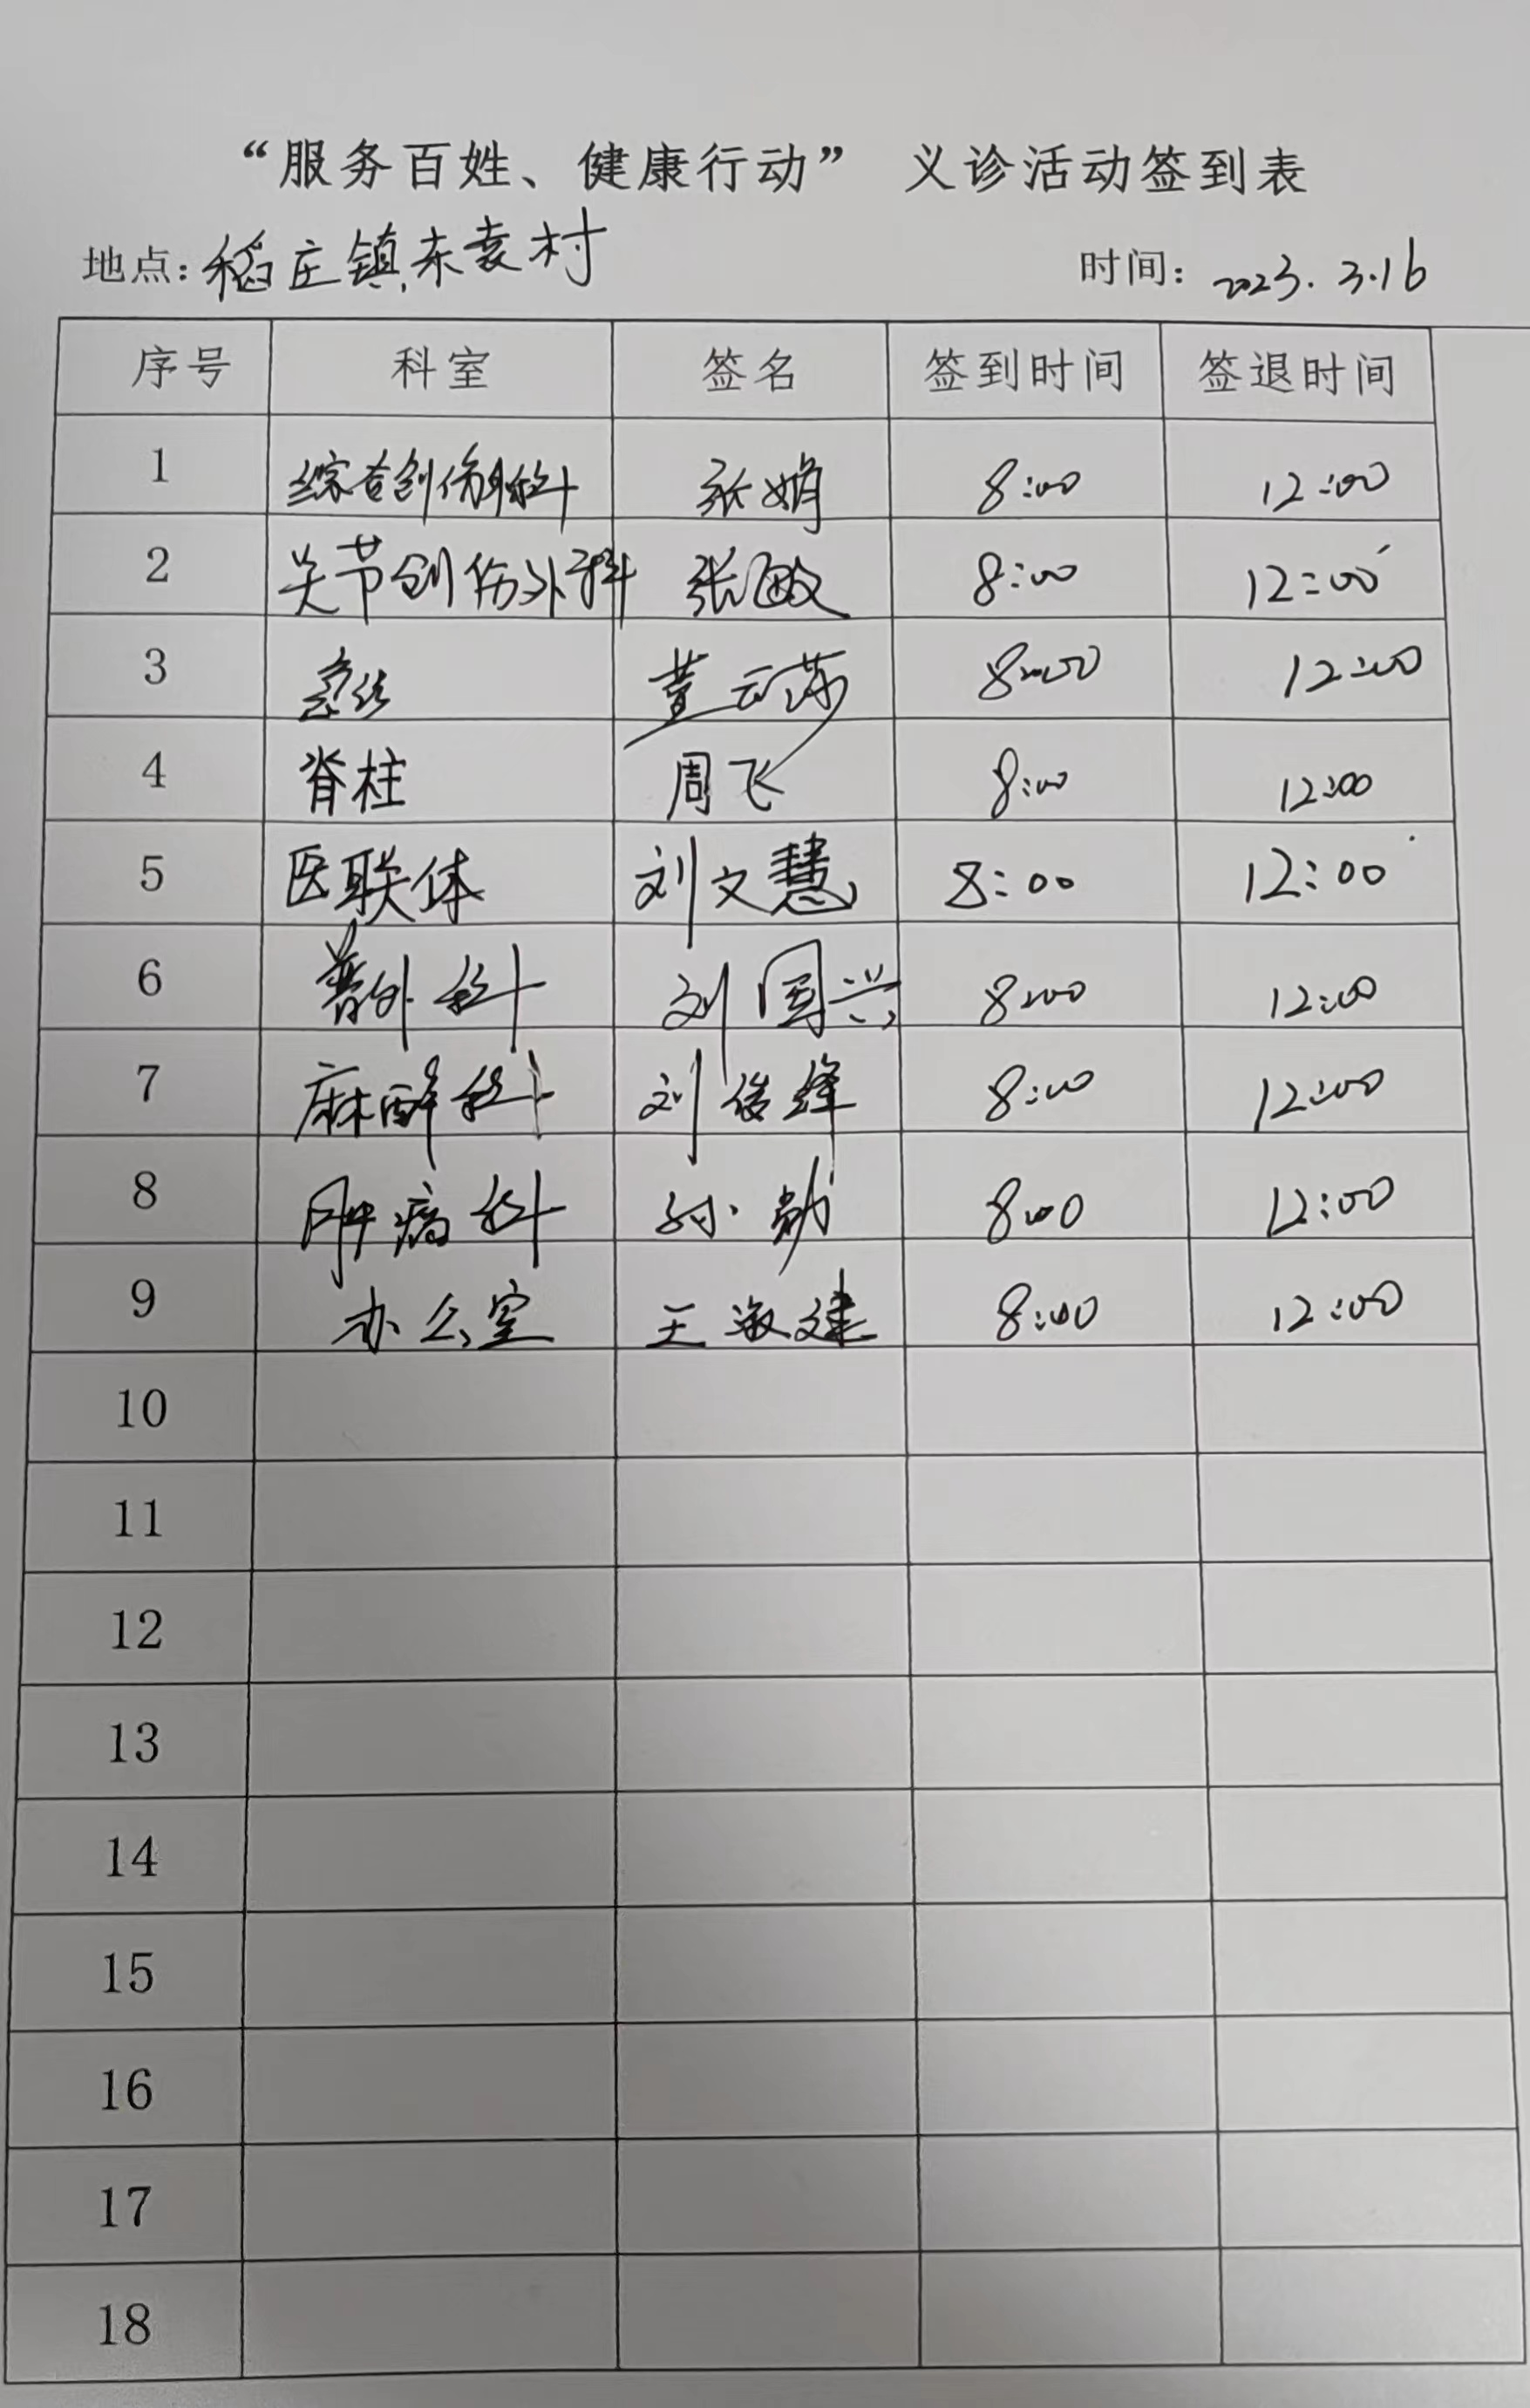 “服务百姓、健康行动” 义诊活动签到表
地点：稻庄镇东袁村 时间：2023.3.16
序号 科室 签名 签到时间 签退时间
1 综合创伤外科 张娟 8:00 12:00
2 关节创伤外科 张敏 8:00 12:00
3 急诊 云莎 8:00 12:00
4 脊柱 周飞 8:00 12:00
5 医联体 刘文慧 8:00 12:00
6 普外科 刘国兴 8:00 12:00
7 麻醉科 刘俊锋 8:00 12:00
8 肿瘤科 孙勋 8:00 12:00
9 办公室 王淑建 8:00 12:00
10
11
12
13
14
15
16
17
18